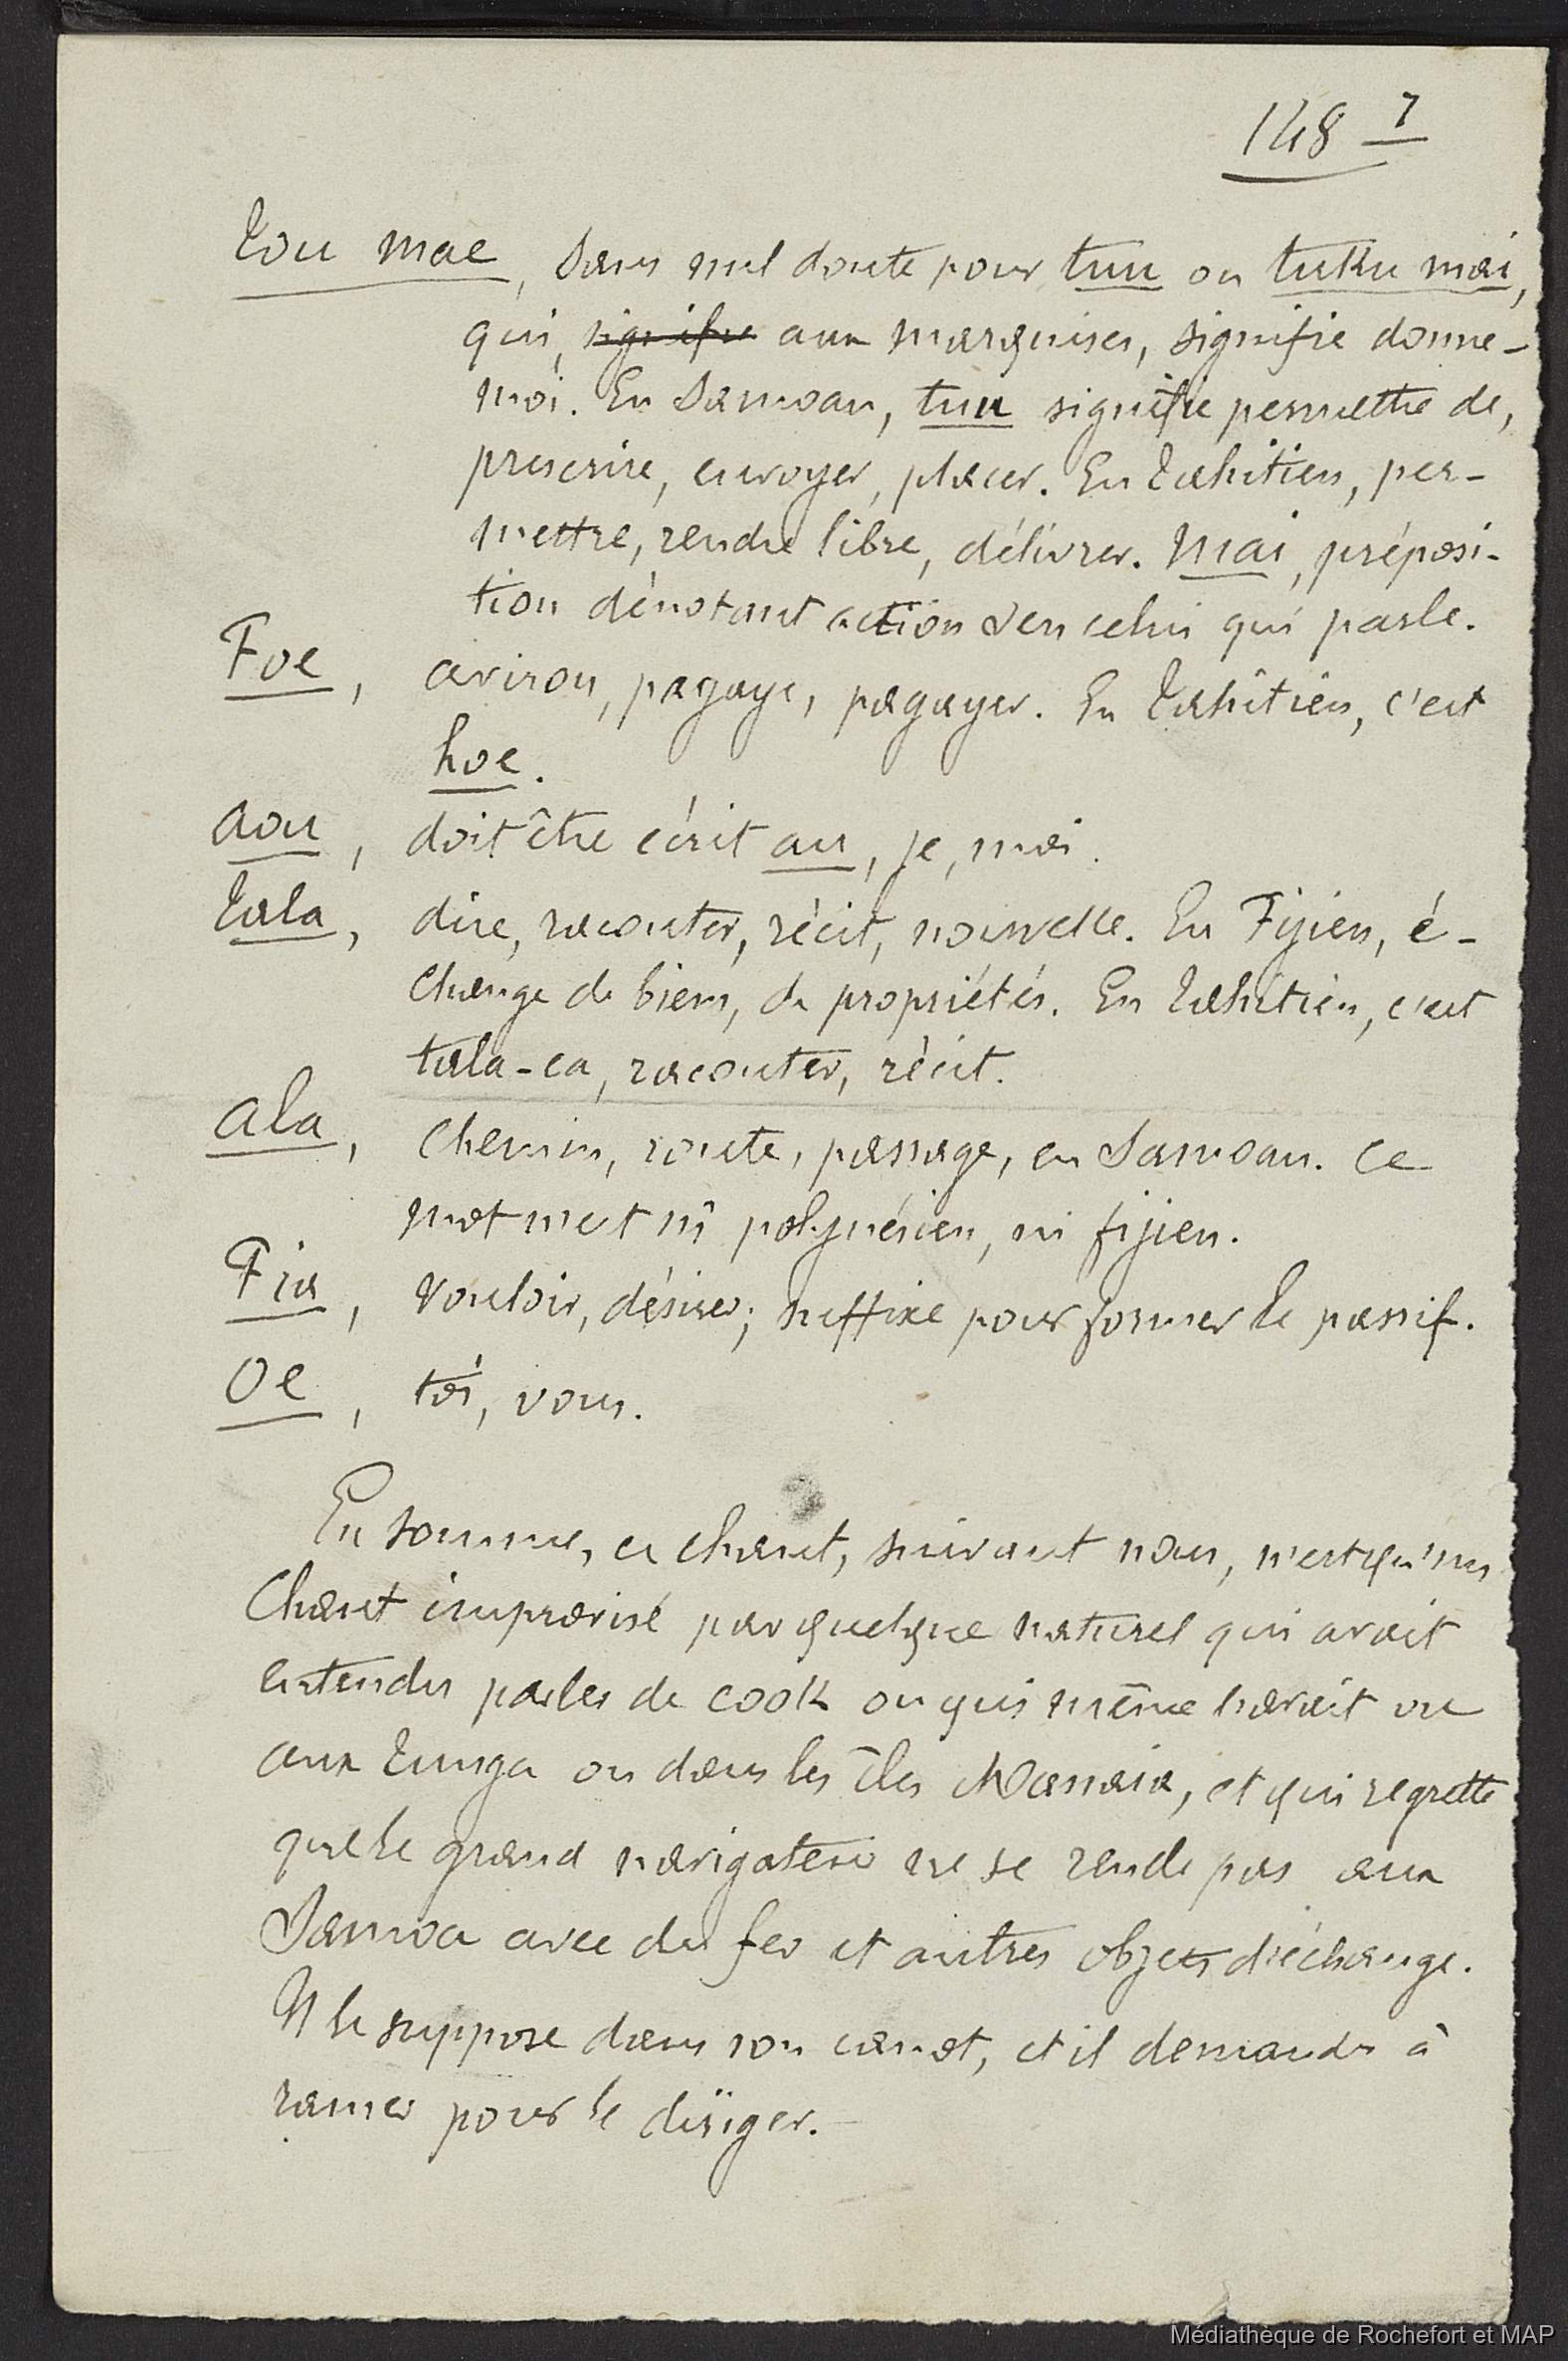 148 7
Tou mae, sans nul doute pour tuu ou tuku mai,
qui, signifie aux marquises, signifie donne-
moi. En Samoan, tuu signifie permettre de,
prescrire, envoyer, placer. En Tahitien, per-
mettre, rendre libre, délivrer. Mai, préposi-
tion dénotant action vers celui qui parle.
Foe, aviron, pagaye, pagayer. En Tahitien, c'est
hoe.
aou, doit être écrit au, je, moi.
Tala, dire, raconter, récit, nouvelle. En Fijien, é-
change de biens, de propriétés. En Tahitien, c'est
tala-ea, raconter, récit.
ala, chemin, route, passage, en Samoan. Ce
mot n'est ni polynésien, ni fijien.
Fia, vouloir, désirer; suffixe pour former le passif.
Oe, toi, vous.
En somme, ce chant, suivant nous, n'est qu'un
Chant improvisé par quelque naturel qui avait
entendu parler de cook ou qui même l'avait vu
aux Tunga ou dans les îles Manaia, et qui regrette
que le grand navigateur ne se rende pas aux
Samoa avec du fer et autres objets d'échange.
Il le suppose dans son canot, et il demande à
ramer pour le diriger.
Médiathèque de Rochefort et MAP